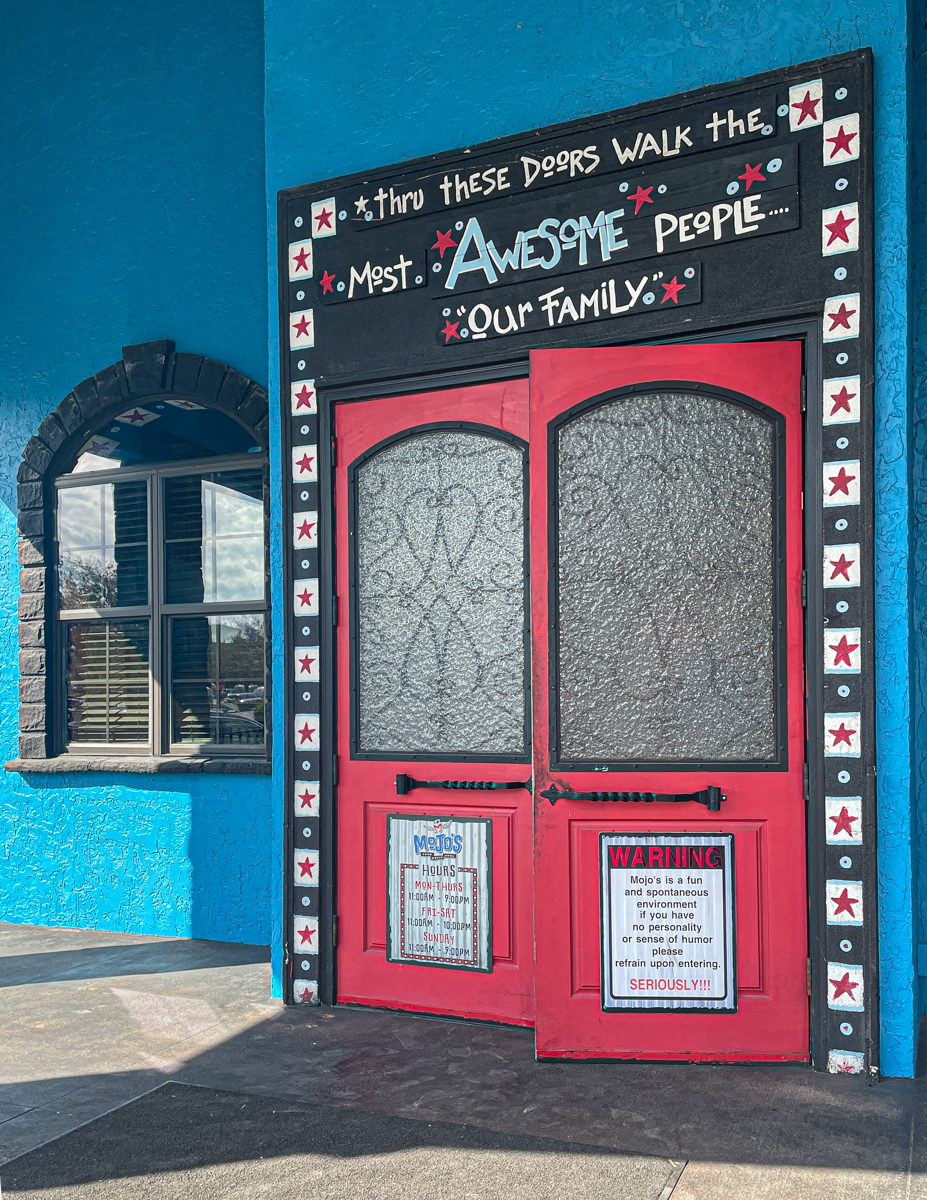 thru these Doors walk the
Most Awesome People....
"Our Family"
Mojo's
Hours
Mon-Thurs
11:00am - 9:00pm
Fri-Sat
11:00am - 10:00pm
Sunday
11:00am - 9:00pm
WARNING
Mojo's is a fun
and spontaneous
environment
if you have
no personality
or sense of humor
please
refrain upon entering.
SERIOUSLY!!!